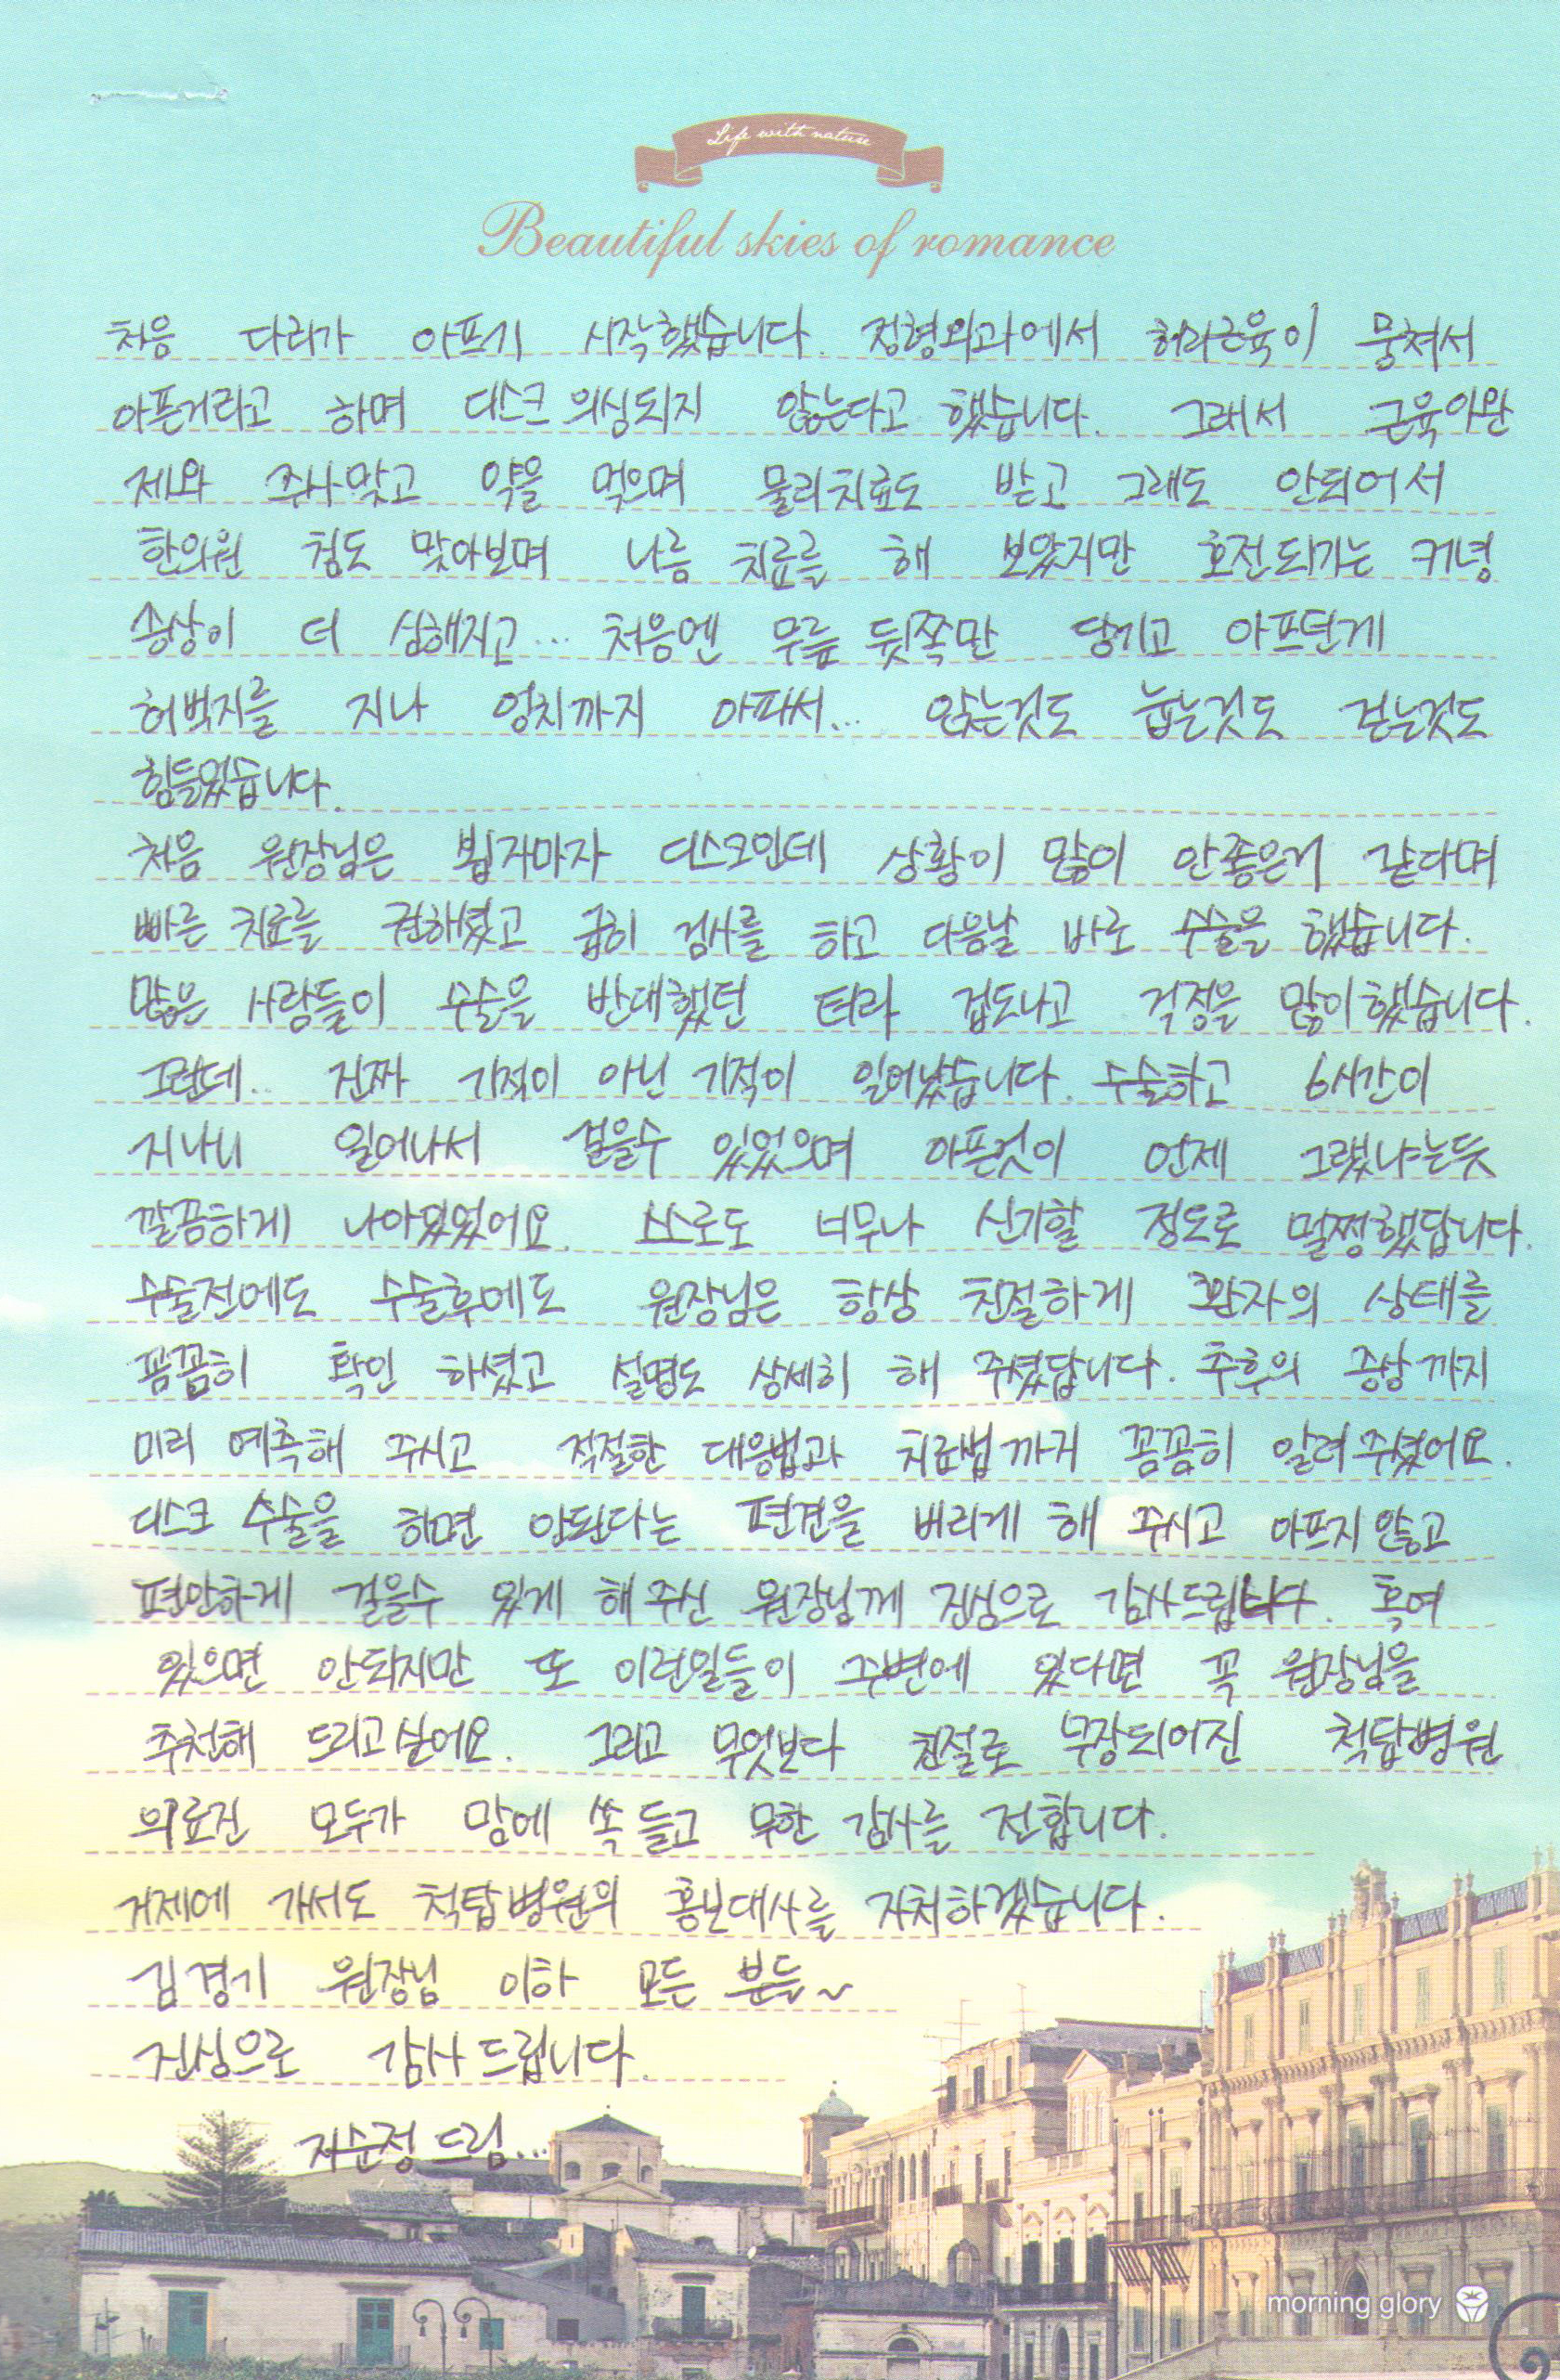 Life with nature
Beautiful skies of romance
처음 다리가 아프기 시작했습니다. 정형외과에서 허리근육이 뭉쳐서
아픈거라고 하며 디스크 의심되지 않는다고 했습니다. 그래서 근육이완
제와 주사맞고 약을 먹으며 물리치료도 받고 그래도 안되어서
한의원 침도 맞아보며 나름 치료를 해 보았지만 호전되기는 커녕
증상이 더 심해지고... 처음엔 무릎 뒷쪽만 당기고 아프던게
허벅지를 지나 엉치까지 아파서... 앉는것도 눕는것도 걷는것도
힘들었습니다.
처음 원장님은 뵙자마자 디스크인데 상황이 많이 안좋은거 같다며
빠른 치료를 권하셨고 급히 검사를 하고 다음날 바로 수술을 했습니다.
많은 사람들이 수술을 반대했던 터라 겁도나고 걱정을 많이했습니다.
그런데.. 진짜 기적이 아닌 기적이 일어났습니다. 수술하고 6시간이
지나니 일어나서 걸을수 있었으며 아픈것이 언제 그랬냐는듯
깔끔하게 나아있었어요. 스스로도 너무나 신기할 정도로 멀쩡했답니다.
수술전에도 수술후에도 원장님은 항상 친절하게 환자의 상태를
꼼꼼히 확인 하셨고 설명도 상세히 해 주셨답니다. 추후의 증상까지
미리 예측해 주시고 적절한 대응법과 치료법까지 꼼꼼히 알려주셨어요.
디스크 수술을 하면 안된다는 편견을 버리게 해 주시고 아프지않고
편안하게 걸을수 있게 해주신 원장님께 진심으로 감사드립니다. 혹여
있으면 안되지만 또 이런일들이 주변에 있다면 꼭 원장님을
추천해 드리고싶어요. 그리고 무엇보다 친절로 무장되어진 척탑병원
의료진 모두가 맘에 쏙 들고 무한 감사를 전합니다.
거제에 가서도 척탑병원의 홍보대사를 자처하겠습니다.
김경기 원장님 이하 모든 분들~
진심으로 감사드립니다.
지순정 드림...
morning glory